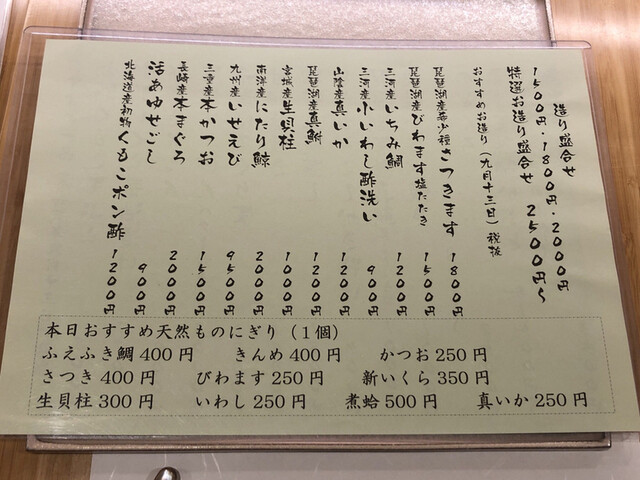 造り盛合せ
1500円・1800円・2000円
特選お造り盛合せ 2500円〜
おすすめお造り(九月十三日)税抜
琵琶湖産希少種さつきます 1800円
琵琶湖産びわます塩たたき 1500円
三河産いちみ鯛 1200円
三河産小いわし酢洗い 900円
山陰産真いか 1200円
琵琶湖産真鮒 1200円
宮城産生貝柱 1000円
南洋産にたり鯨 2000円
九州産いせえび 9500円
三重産本かつお 1500円
長崎産本まぐろ 2000円
活あゆせごし 900円
北海道産初物くもこポン酢 1200円
本日おすすめ天然ものにぎり(1個)
ふえふき鯛400円 きんめ400円 かつお250円
さつき400円 びわます250円 新いくら350円
生貝柱300円 いわし250円 煮蛤500円 真いか250円